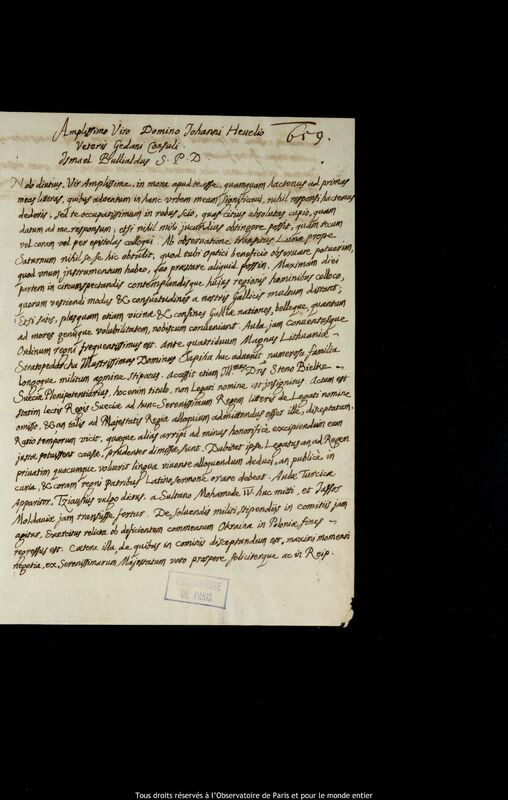 Amplissimo Viro Domino Johanni Hevelio
659.
Veteris Gedani Consuli.
Ismael Bullialdus S. P. D.
Nob diutius, Vir Amplissime, in mora apud te esse, quamquam hactenus ad primas
meas litteras, quibus adventum in hanc Vrbem meum significavi, nihil responsi hactenus
dederis, sed te occupatissimum in rebus scio, quas citius absolutas cupio, quam
datum ad me responsum; etsi nihil mihi jucundius obtingere possit, quàm tecum
vel coram vel per epistolas colloqui. Ab observatione transitus Lunæ prope
Saturnum nihil hic obstitit, quod tubi optici beneficio observare potuerim,
quod unum instrumentum habeo, quo præstare aliquid possim. Maximam diei
partem in circumspectandis contemplandisque hujus regionis hominibus colloco,
quorum vestiendi modus & consuetudines a nostris Gallicis multum distant;
Etsi satis, plusquam etiam vicinæ & confines Galliæ nationes, belleque, quantum
ad mores geniique volubilitatem, nobiscum conveniant. Aula jam Conventusque
Ordinum regni frequentissimus est. Ante quatriduum Magnus Lithuaniæ
Stratopedarcha Illustrissimus Dominus Sapiha huc advenit numerosa familia
longoque militum agmine stipatus. Accessit etiam Ill.mus D.nus Steno Bielke
Sueciæ Plenipotentiarius, hoc enim titulo, non Legati nomine est insignitus. Actum est
statim lectis Regis Sueciæ ad hunc Serenissimum Regem litteris de Legati nomine
omisso, & an talis ad Majestatis Regiæ alloquium admittendus esset ille, disceptatum.
Ratio temporum vicit, quæque alias arripi ad minus honorificè excipiendum eum
justæ potuissent causæ, prudenter dimissæ sunt. Dubitat ipse Legatus an ad Regem
privatim quacumque voluerit lingua vivente alloquendum deduci, an publicè in
curia, & coram regni patribus Latino sermone orare debeat. Aulæ Turcicæ
Apparitor, Tzïausius vulgo dictus a Sultano Mohamede IV. huc missus, et Jassos
Moldaviæ jam transisse fertur. De solvendis militi stipendiis in comitiis jam
agitur. Exercitus relicta ob deficientem commeatum Okraina in Poloniæ fines
regressus est. Cætera illa de quibus in comitiis disceptandum est, maximi momenti
negotia, ex Serenissimarum Majestatum voto prospere feliciterque ac in Reip.
OBSERVATOIRE
DE PARIS
Tous droits réservés à l'Observatoire de Paris et pour le monde entier